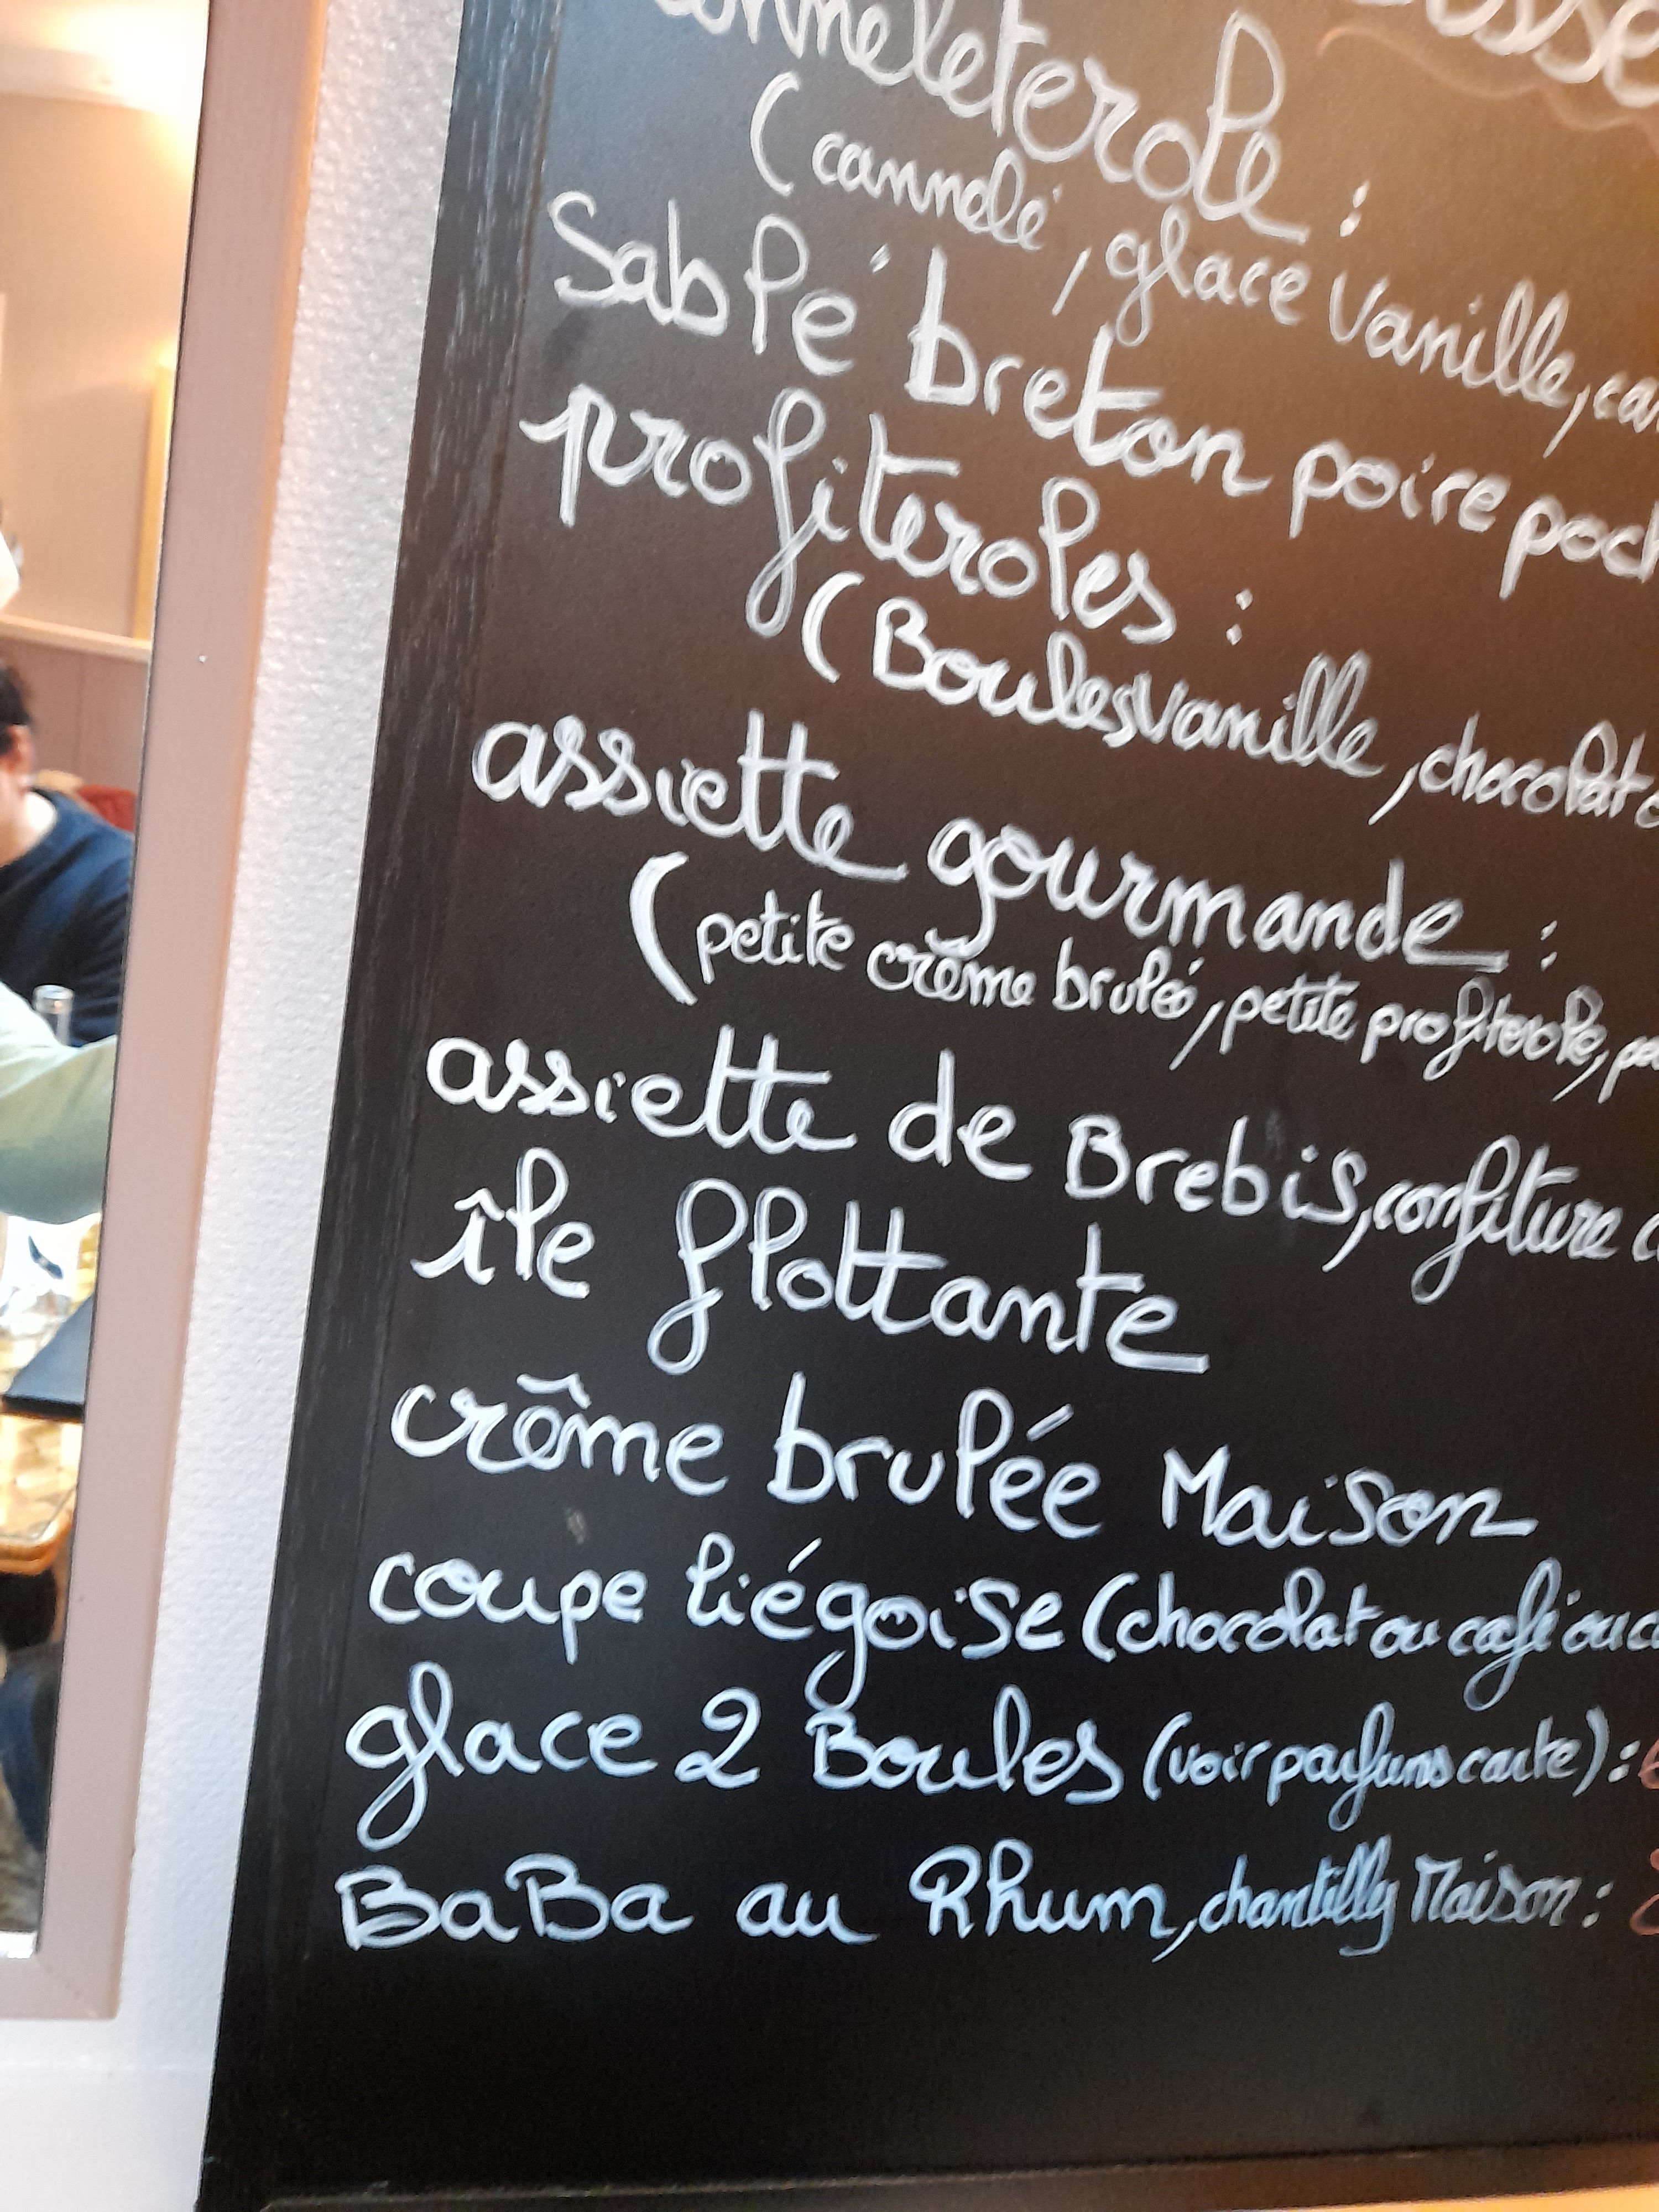 nneleterole :
(cannelé, glace Vanille, car
Sablé breton poire poch
profiteroles :
(Boules Vanille, chocolat
assiette gourmande :
(petite crême brulée, petite profiterole, pe
assiette de Brebis, confiture c
île flottante
crême brulée Maison
coupe liégoise (chocolat ou café ou c
glace 2 Boules (voir parfums carte) :
BaBa au Rhum, chantilly Maison :